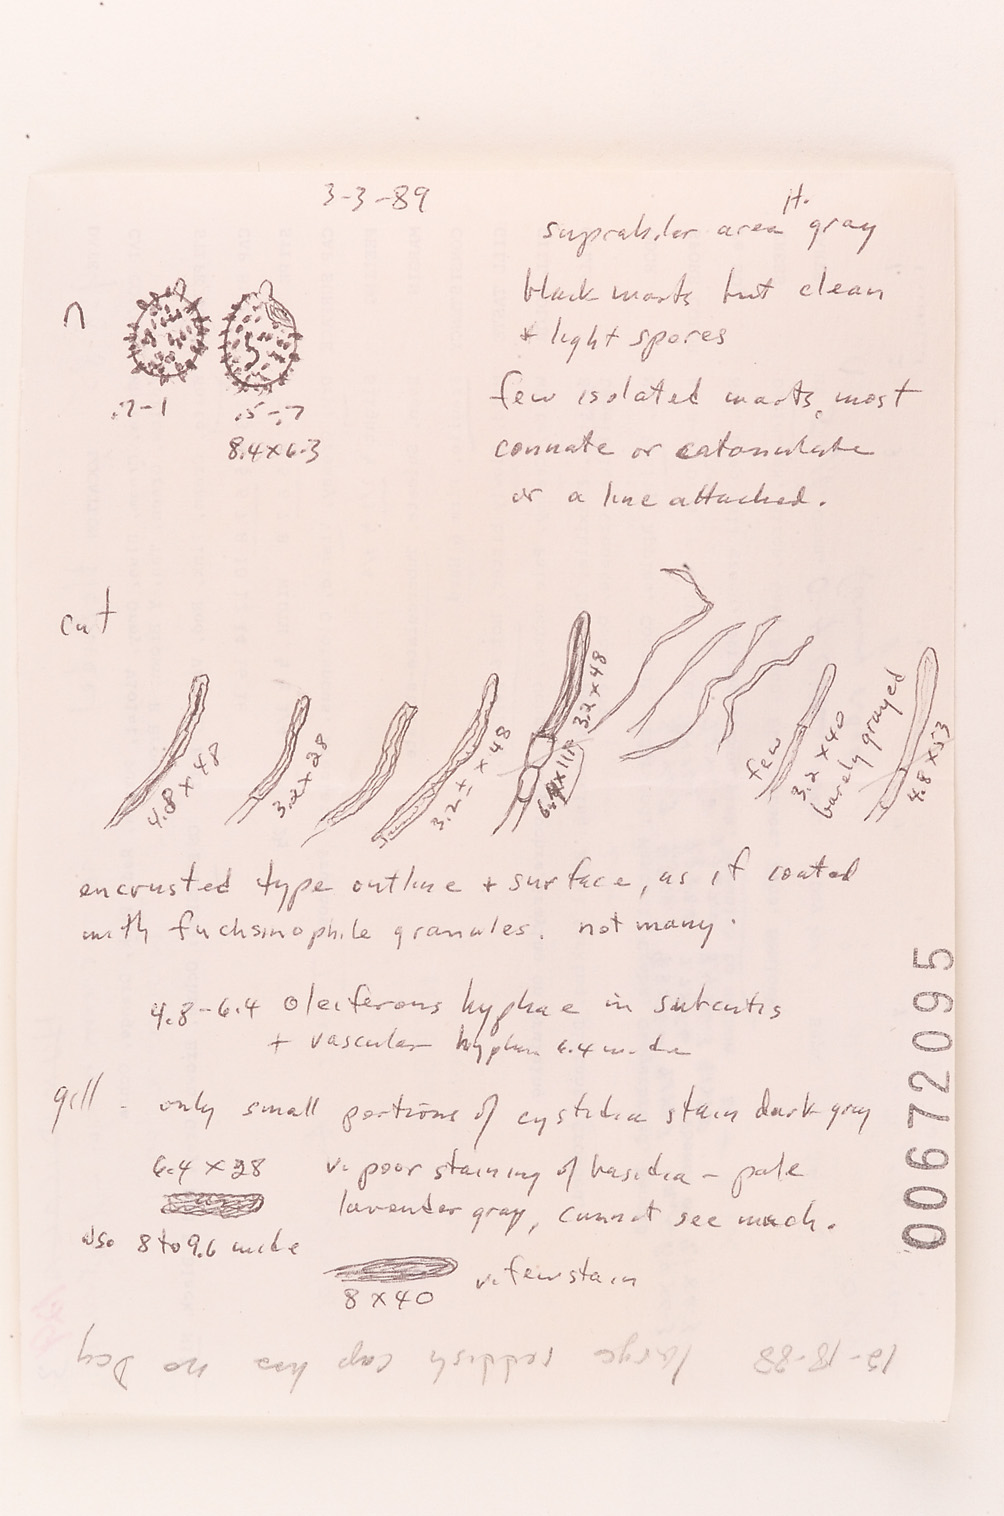 3-3-89
lt.
suprahilar area gray
black warts but clean
+ light spores
few isolated warts, most
connate or catenulate
or a line attached.
n
.7-1
.5-.7
8.4x6.3
cut
4.8 x 48
3.2 x 28
3.2 ± x 48
3.2 x 48
few
3.2 x 40
barely grayed
4.8 x 53
encrusted type outline + surface, as if coated
with fuchsinophile granules. not many.
4.8-6.4 oleiferous hyphae in subcutis
+ vascular hyphae 6.4 wide
gill - only small portions of cystidia stain dark gray
6.4 x 28
v. poor staining of basidia - pale
lavender gray, cannot see much.
also 8 to 9.6 wide
v. few stain
8 x 40
12-18-88 large reddish cap has no
00672095